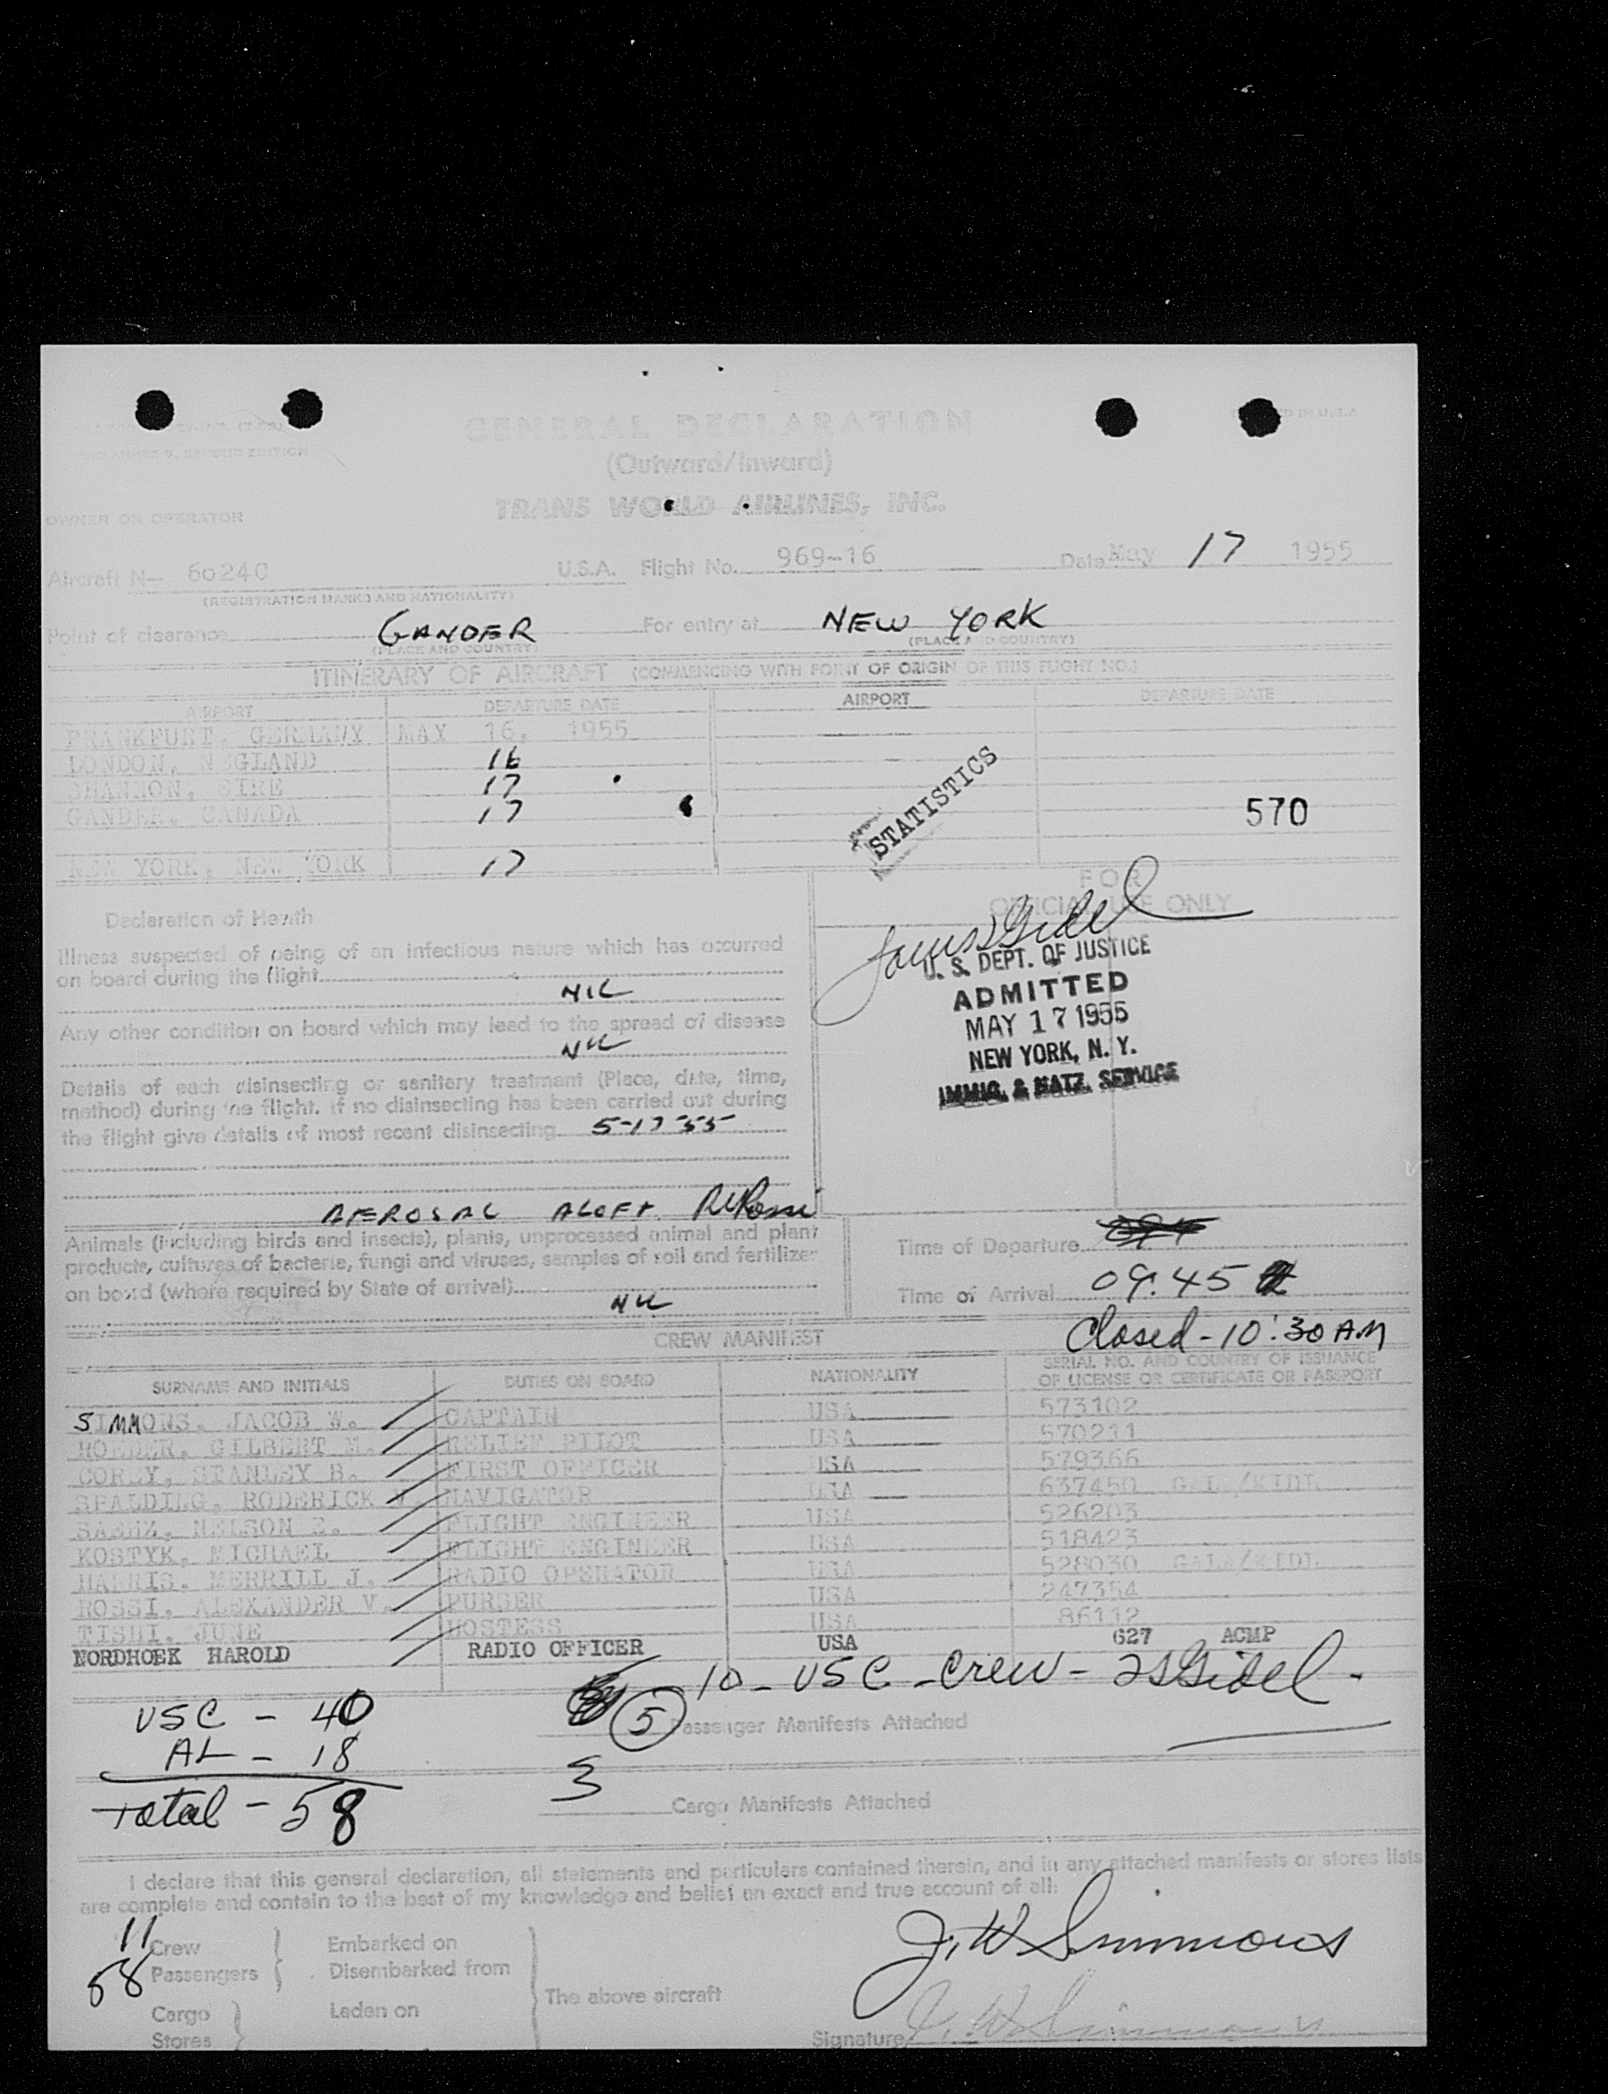 GENERAL DECLARATION
(Outward/Inward)
TRANS WORLD AIRLINES, INC.
OWNER OR OPERATOR
Aircraft N- 6024C U.S.A. Flight No. 969-16 Date May 17 1955
(REGISTRATION MARKS AND NATIONALITY)
Point of clearance GANDER For entry at NEW YORK
(PLACE AND COUNTRY) (PLACE AND COUNTRY)
ITINERARY OF AIRCRAFT (COMMENCING WITH POINT OF ORIGIN OF THIS FLIGHT NO.)
AIRPORT DEPARTURE DATE AIRPORT DEPARTURE DATE
FRANKFURT, GERMANY MAY 16, 1955
LONDON, NEGLAND 16
SHANNON, EIRE 17
GANDER, CANADA 17
NEW YORK, NEW YORK 17
STATISTICS
570
FOR
OFFICIAL USE ONLY
U. S. DEPT. OF JUSTICE
ADMITTED
MAY 17 1955
NEW YORK, N. Y.
IMMIG. & NATZ. SERVICE
Declaration of Health
Illness suspected of being of an infectious nature which has occurred
on board during the flight
NIL
Any other condition on board which may lead to the spread of disease
NIL
Details of each disinsecting or sanitary treatment (Place, date, time,
method) during the flight. If no disinsecting has been carried out during
the flight give details of most recent disinsecting 5-17 55
AEROSAL ALOFT
Animals (including birds and insects), plants, unprocessed animal and plant
products, cultures of bacteria, fungi and viruses, samples of soil and fertilizer
on board (where required by State of arrival)
NIL
Time of Departure
Time of Arrival 09:45
Closed - 10:30 AM
CREW MANIFEST
SURNAME AND INITIALS DUTIES ON BOARD NATIONALITY SERIAL NO. AND COUNTRY OF ISSUANCE
OF LICENSE OR CERTIFICATE OR PASSPORT
SIMMONS, JACOB W. CAPTAIN USA 573102
ROEDER, GILBERT M. RELIEF PILOT USA 570211
COREY, STANLEY B. FIRST OFFICER USA 579366
SPALDING, RODERICK NAVIGATOR USA 637450
NELSON E. FLIGHT ENGINEER USA 526203
KOSTYK, MICHAEL FLIGHT ENGINEER USA 518423
HARRIS, MERRILL J. RADIO OPERATOR USA 528030
ROSSI, ALEXANDER V. PURSER USA 247354
TISHI, JUNE HOSTESS USA 86112
NORDHOEK HAROLD RADIO OFFICER USA 627 ACMP
10 - USC - Crew -
USC - 40
AL - 18
Total - 58
5 Passenger Manifests Attached
3 Cargo Manifests Attached
I declare that this general declaration, all statements and particulars contained therein, and in any attached manifests or stores lists
are complete and contain to the best of my knowledge and belief an exact and true account of all:
11 Crew Embarked on
58 Passengers Disembarked from
Cargo Laden on
Stores
The above aircraft
J. W Simmons
Signature J. W Simmons